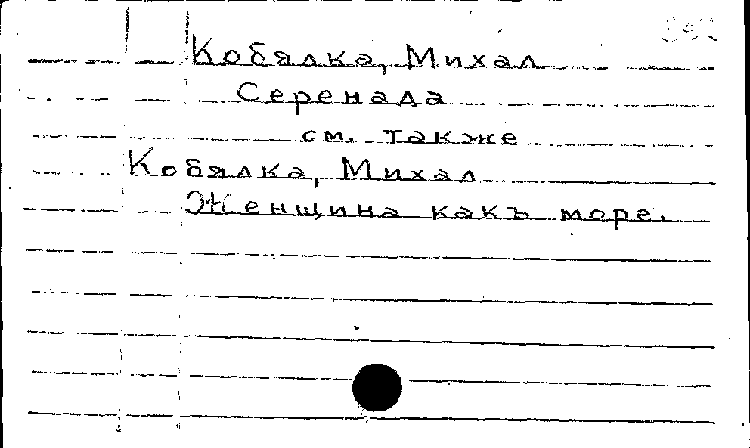 Кобялка, Михал
Серенада
см. также
Кобялка, Михал
Женщина какъ море.